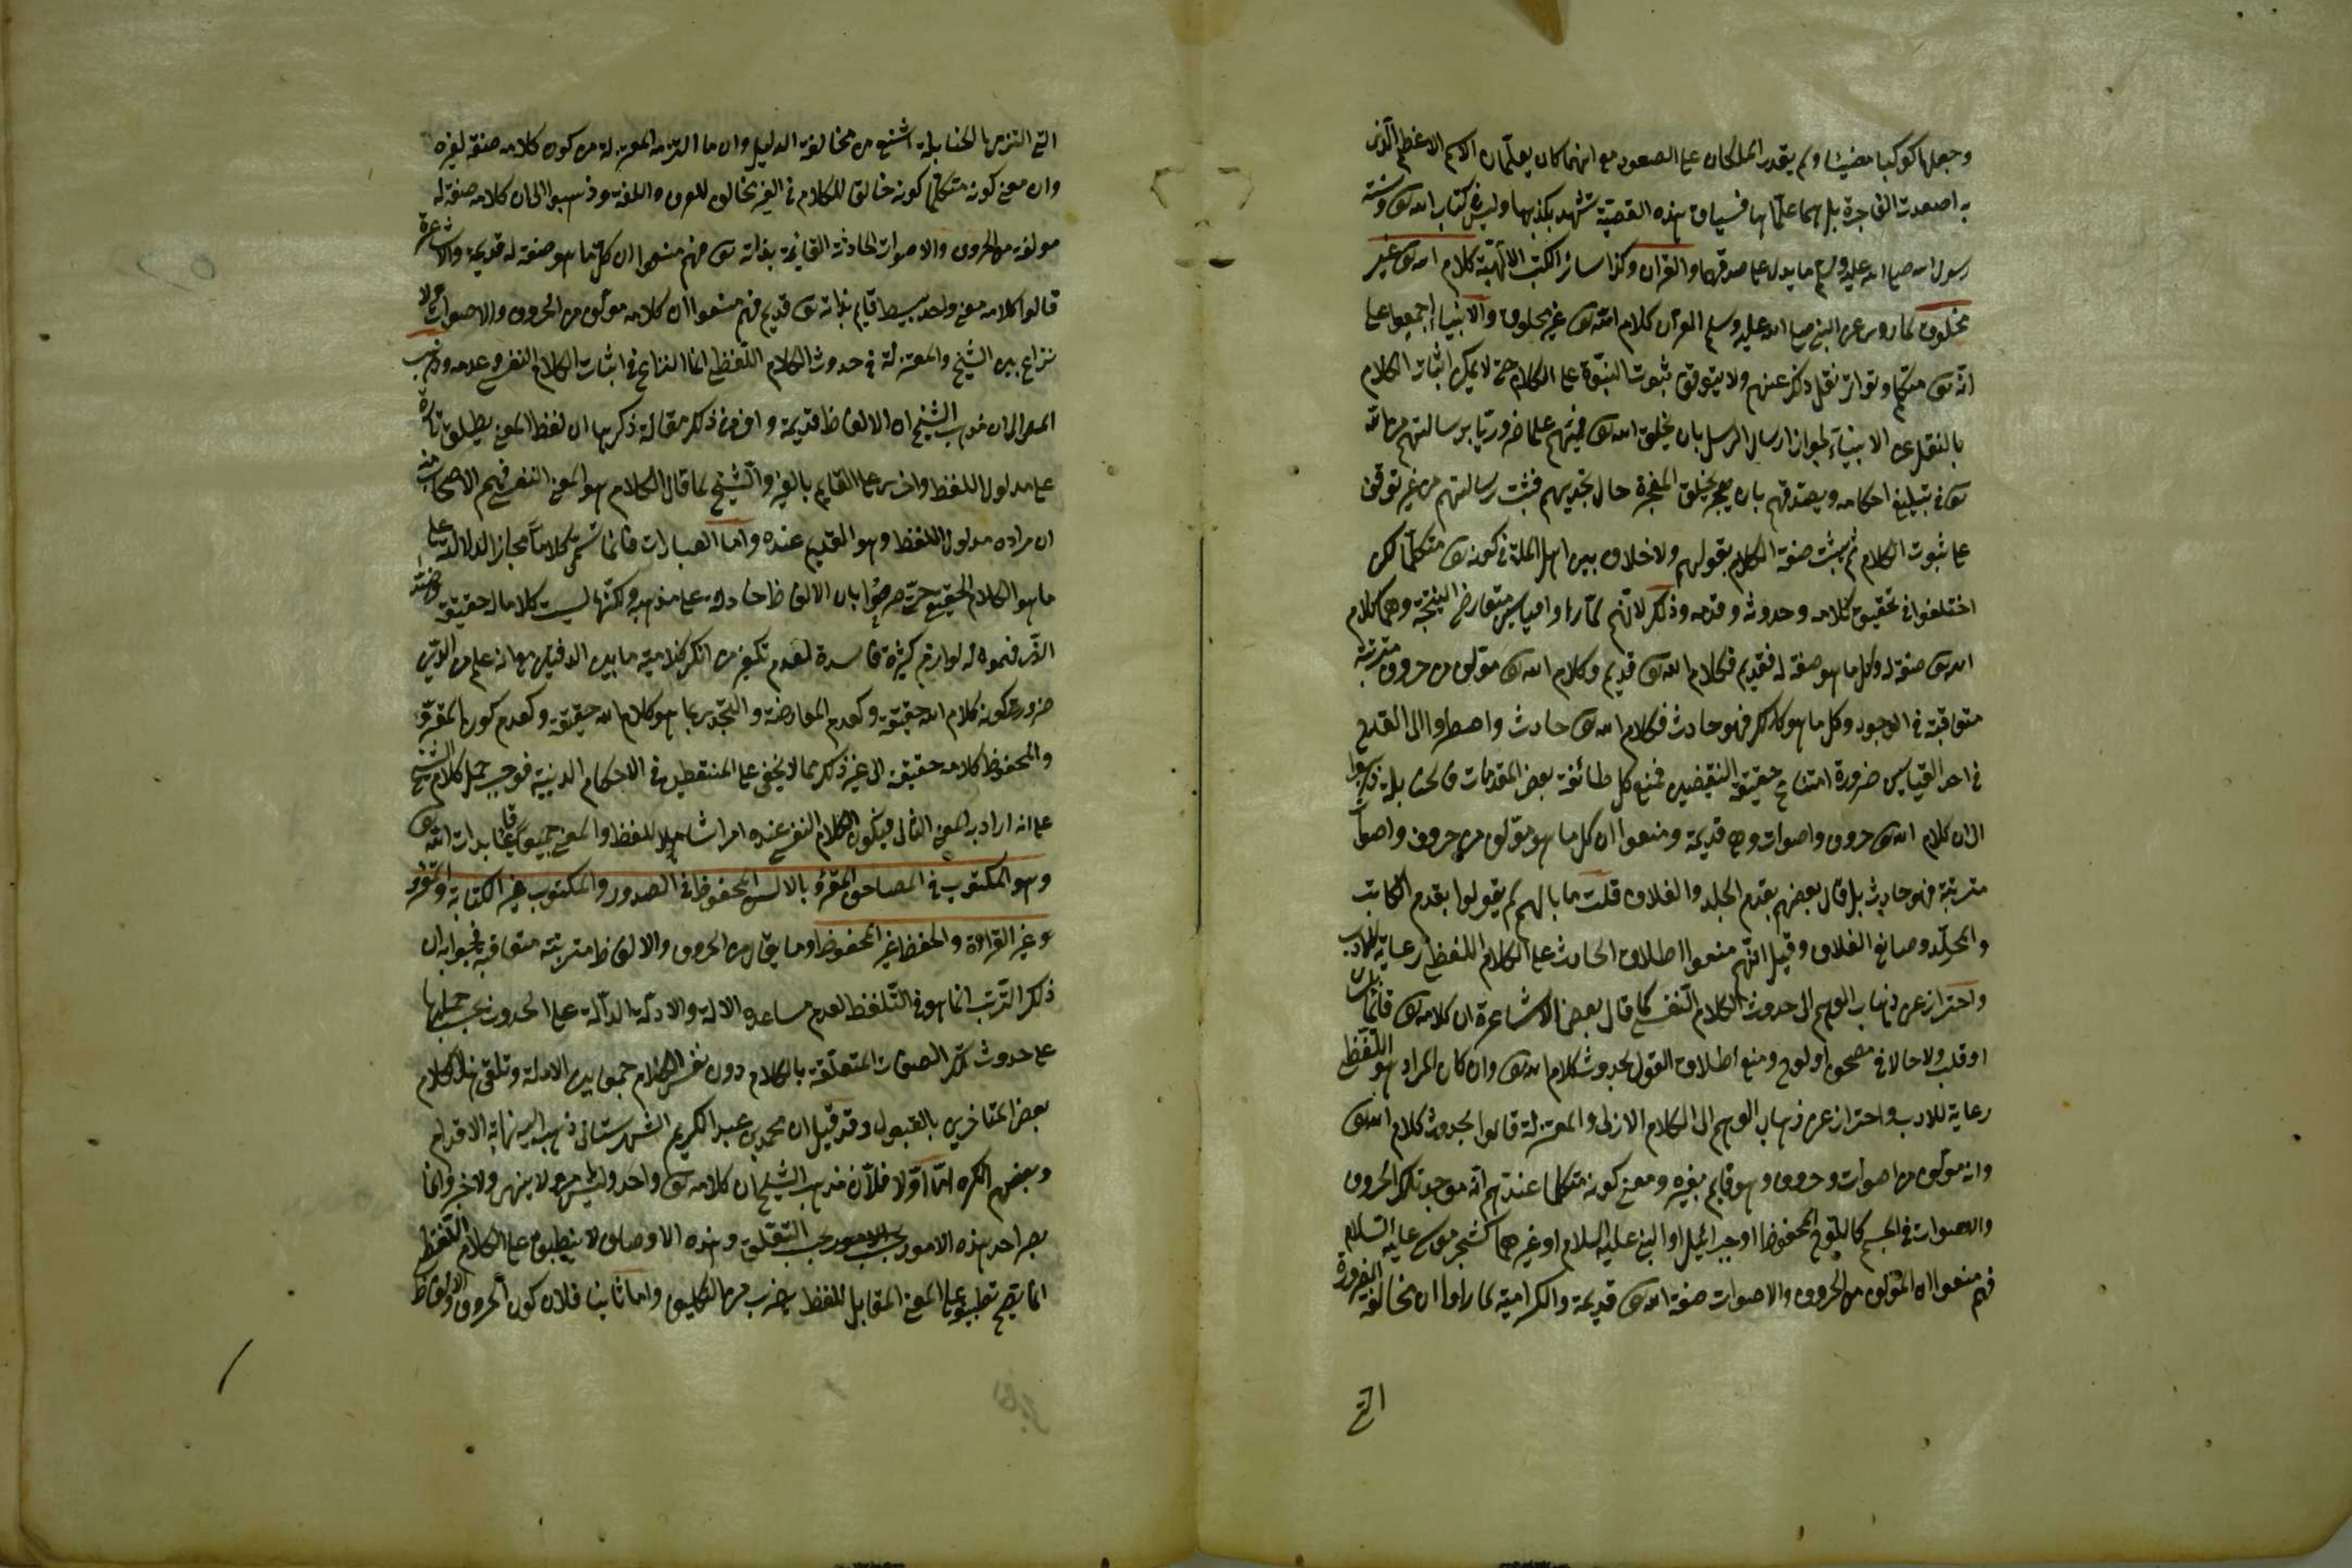 وجعلها كوكبا مضيئا ولم يقدر الملكان على الصعود مع انهما كان يعلمان الاسم الاعظم الذى
به اصعدت الفاجرة بل هما علماها فسياق هذه القصة تشهد بكذبها وليس فى كتاب الله تع وسنة
رسول الله صلى الله عليه وسلم ما يدل على صدقها والقران وكذا سائر الكتب الالهية كلام الله تع غير
مخلوق لما روى عن النبى صلى الله عليه وسلم القرآن كلام الله تع غير مخلوق والانبياء اجمعوا على
انه تع متكلم وتواتر نقل ذلك عنهم ولا يتوقف ثبوت النبوة على الكلام حتى لا يمكن اثبات الكلام
بالنقل عن الانبياء لجواز ارسال الرسل بان يخلق الله تع فيهم علما ضروريا برسالتهم من الله
تع فى تبليغ احكامه ويصدقهم بان يخلق المعجزة حال تحديهم فثبت رسالتهم من غير توقف
على ثبوت الكلام ثم يثبت صفة الكلام بقولهم ولا خلاف بين اهل الملة فى كونه تع متكلما لكن
اختلفوا فى تحقيق كلامه وحدوثه وقدمه وذلك لانهم لما راوا قياسين متعارضى النتيجة وهما كلام
الله تع صفة له وكل ما هو صفة له فقديم فكلام الله تع قديم وكلام الله تع مؤلف من حروف مترتبة
متعاقبة فى الوجود وكل ما هو كذلك فهو حادث فكلام الله تع حادث واضطروا الى القدح
فى احد القياسين ضرورة امتناع حقيقة النقيضين فمنع كل طائفة بعض المقدمات فالحنابلة ذهبوا
الى ان كلام الله تع حروف واصوات وهى قديمة ومنعوا ان كل ما هو مؤلف من حروف واصوات
مترتبة فهو حادث بل قال بعضهم بقدم الجلد والغلاف قلت ما بالهم لم يقولوا بقدم الكاتب
والمجلد وصانع الغلاف وقيل انهم منعوا اطلاق الحادث على الكلام اللفظى رعاية للادب
واحتراز عن ذهاب الوهم الى حدوث الكلام النفسى كما قال بعض الاشاعرة ان كلامه تع قائما بلسان
او قلب ولا حالا فى مصحف او لوح ومنع اطلاق القول بحدوث كلام الله تع وان كان المراد هو اللفظى
رعاية للادب واحتراز عن ذهاب الوهم الى الكلام الازلى والمعتزلة قالوا بحدوث كلام الله تع
وانه مؤلف من اصوات وحروف وهو قايم بغيره ومعنى كونه متكلما عندهم انه موجد تلك الحروف
والاصوات فى الجسم كاللوح المحفوظ او جبرائيل او النبى عليه السلام او غيرهما كشجر موسى عليه السلام
فهم منعوا ان المؤلف من الحروف والاصوات صفة الله تع قديمة والكرامية لما راوا ان مخالفة الضرورة
التى
التى التزمها الحنابلة اشنع من مخالفة الدليل وان ما التزمه المعتزلة من كون كلامه صفة لغيره
وان معنى كونه متكلما كونه خالقا للكلام فى الغير مخالف للعرف واللغة وذهبوا الى ان كلامه صفة له
مؤلفة من الحروف والاصوات الحادثة القائمة بذاته تع فهم منعوا ان كل ما هو صفة له قديمة والاشاعرة
قالوا كلامه معنى واحد بسيط قايم بذاته تع قديم فهم منعوا ان كلامه مؤلف من الحروف والاصوات ولا
نزاع بين الشيخ والمعتزلة فى حدوث الكلام اللفظى انما النزاع فى اثبات الكلام النفسى وعدمه وذهب
المص الى ان مذهب الشيخ ان الالفاظ قديمة وافرد فى ذلك مقالة ذكر بها ان لفظ المعنى يطلق تارة
على مدلول اللفظ واخرى على القايم بالغير والشيخ لما قال الكلام هو المعنى النفسى فهم الاصحاب منه
ان مراده مدلول اللفظ وهو القديم عنده واما العبارات فانما تسمى كلاما مجازا لدلالته على
ما هو الكلام الحقيقى حتى صرحوا بان الالفاظ حادثة على مذهبه ولكنها ليست كلاما له حقيقة وهذا
الذى فهموه له لوازم كثيرة فاسدة لعدم تكفير من انكر كلامية ما بين الدفتين مع انه علم من الدين
ضرورة كونه كلام الله حقيقة وكعدم المعارضة والتحدى بما هو كلام الله حقيقة وكعدم كون المقرؤ
والمحفوظ كلامه حقيقة الى غير ذلك مما لا يخفى على المتفطن فى الاحكام الدينية فوجب حمل كلام الشيخ
على انه اراد به المعنى الثانى فيكون الكلام النفسى عنده امرا شاملا للفظ والمعنى جميعا قايما بذات الله تع
وهو المكتوب فى المصاحف المقرؤ بالالسن المحفوظ فى الصدور والمكتوب غير الكتابة والمقرؤ
وغير القراءة والحفظ غير المحفوظ وما يقال من ان الحروف والالفاظ مترتبة متعاقبة فجوابه ان
ذلك الترتب انما هو فى التلفظ لعدم مساعدة الالة والادلة الدالة على الحدوث يجب حملها
على حدوث تلك الصفات المتعلقة بالكلام دون نفس الكلام جمعا بين الادلة وتلقى هذا الكلام
بعض المتاخرين بالقبول وقد قيل ان محمد بن عبد الكريم الشهرستانى ذهب اليه فى نهاية الاقدام
وبعضهم انكره اما اولا فلان مذهب الشيخ ان كلامه تع واحد وليس بامر ولا نهى ولا خبر وانما
يصير احد هذه الامور بحسب التعلق وهذه الاوصاف لا ينطبق على الكلام اللفظى
انما يصح تطبيقه على المعنى المقابل للفظ بضرب من التكليف واما ثانيا فلان كون الحروف والالفاظ